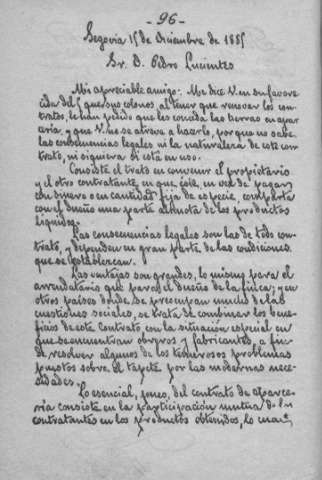 - 96 -
Segovia 15 de Diciembre de 1885
Sr. D. Pedro Lucientes
Mi apreciable amigo: Me dice V. en su favore-
cida del 5 que sus colonos, al tener que renovar los con-
tratos, le han pedido que les conceda las tierras en apar-
cería, y que V. no se atreve a hacerlo, porque no sabe
las consecuencias legales ni la naturaleza de este con-
trato, ni siquiera si está en uso.
Consiste el trato en convenir el propietario
y el otro contratante, en que, éste, en vez de pagar
con dinero o en cantidad fija de especie, comparta
con el dueño una parte alícuota de los productos
líquidos.
Las consecuencias legales son las de todo con-
trato, y dependen en gran parte de las condiciones
que se establezcan.
Las ventajas son grandes, lo mismo para el
arrendatario que para el dueño de la finca; y en
otros países donde se preocupan mucho de las
cuestiones sociales, se trata de combinar los bene-
ficios de este Contrato con la situación especial en
que se encuentran obreros y fabricantes, a fin
de resolver algunos de los temerosos problemas
puestos sobre el tapete por las modernas nece-
sidades.
Lo esencial, pues, del contrato de aparce-
ría consiste en la participación mutua de los
contratantes en los productos obtenidos, lo cual